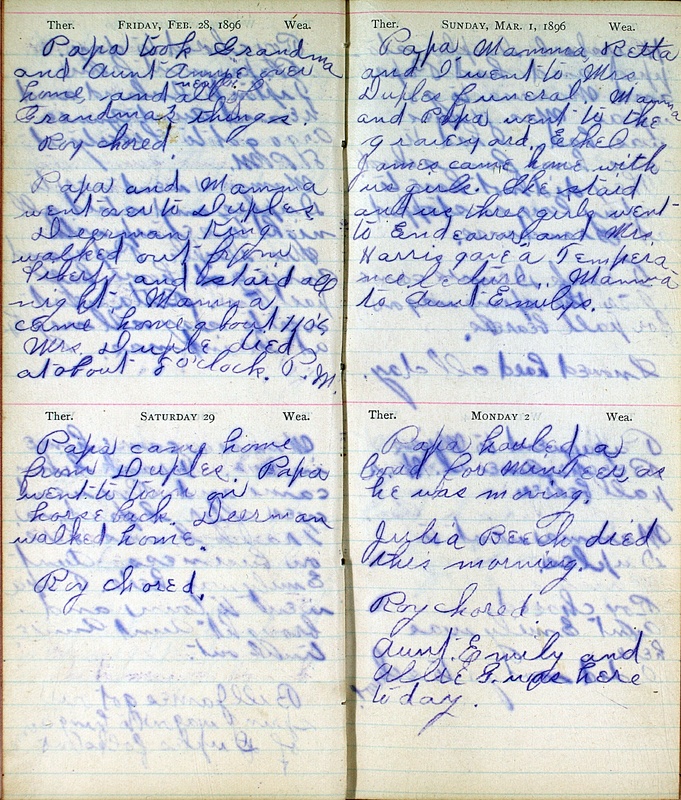 Ther. FRIDAY, FEB. 28, 1896 Wea.
Papa took Grandma
and Aunt Annie over
home, and all
nearly
Grandma's things.
Roy chored.
Papa and Mamma
went over to Duples
Deerman King
walked out from
Liberty and staid all
night. Mamma
came home about 11 o's
Mrs. Duple died
at about 8 o'clock. P.M.
Ther. SATURDAY 29 Wea.
Papa came home
from Duples. Papa
went to town on
horse back. Deerman
walked home.
Roy chored.
Ther. SUNDAY, MAR. 1, 1896 Wea.
Papa Mamma Retta
and I went to Mrs
Duples funeral. Mamma
and Papa went to the
graveyard. Ethel
James came home with
us girls. She staid
and us three girls went
to Endeavor and Mrs
Harris gave a Tempera
nce lecture. Mamma
to Aunt Emilys.
Ther. MONDAY 2 Wea.
Papa hauled a
load for Minteer, as
he was moving.
Julia Beech died
this morning.
Roy chored
Aunt Emily and
Allie G. was here
today.